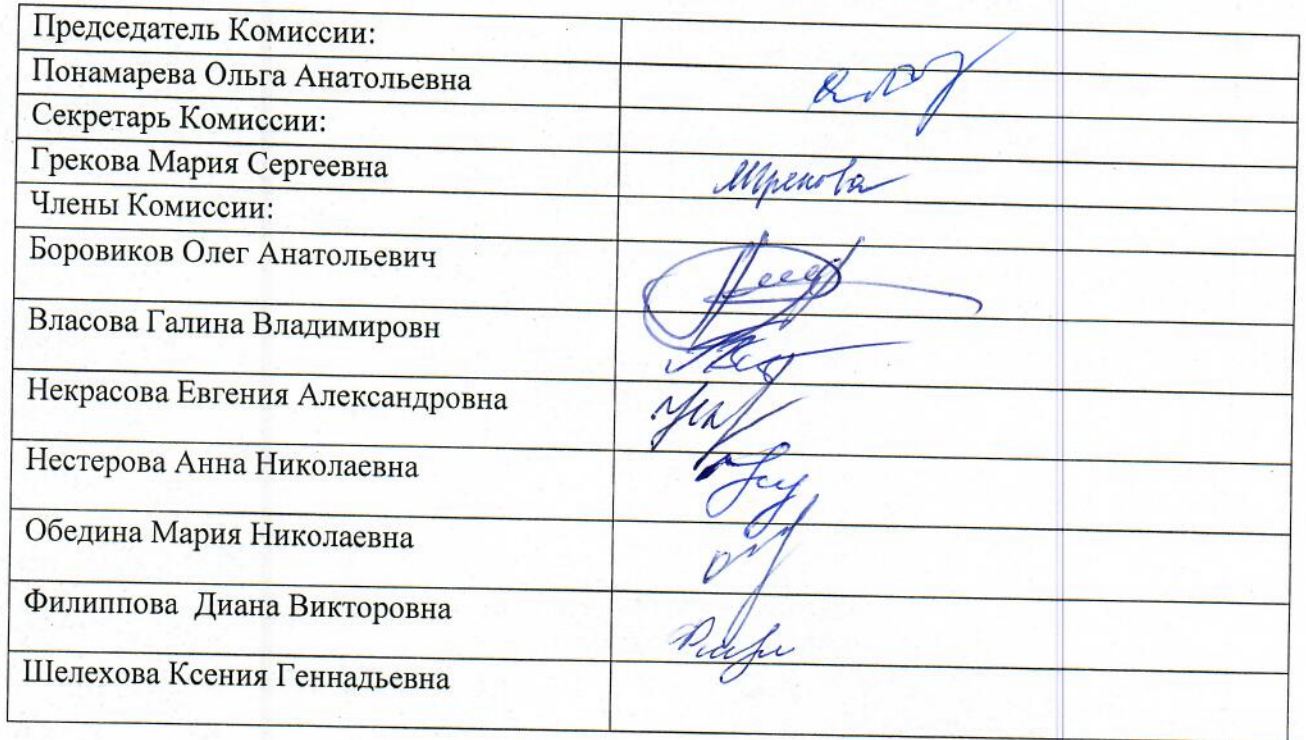 Председатель Комиссии:
Понамарева Ольга Анатольевна
Секретарь Комиссии:
Грекова Мария Сергеевна
МГрекова
Члены Комиссии:
Боровиков Олег Анатольевич
Власова Галина Владимировн
Некрасова Евгения Александровна
Нестерова Анна Николаевна
Обедина Мария Николаевна
Филиппова Диана Викторовна
Шелехова Ксения Геннадьевна